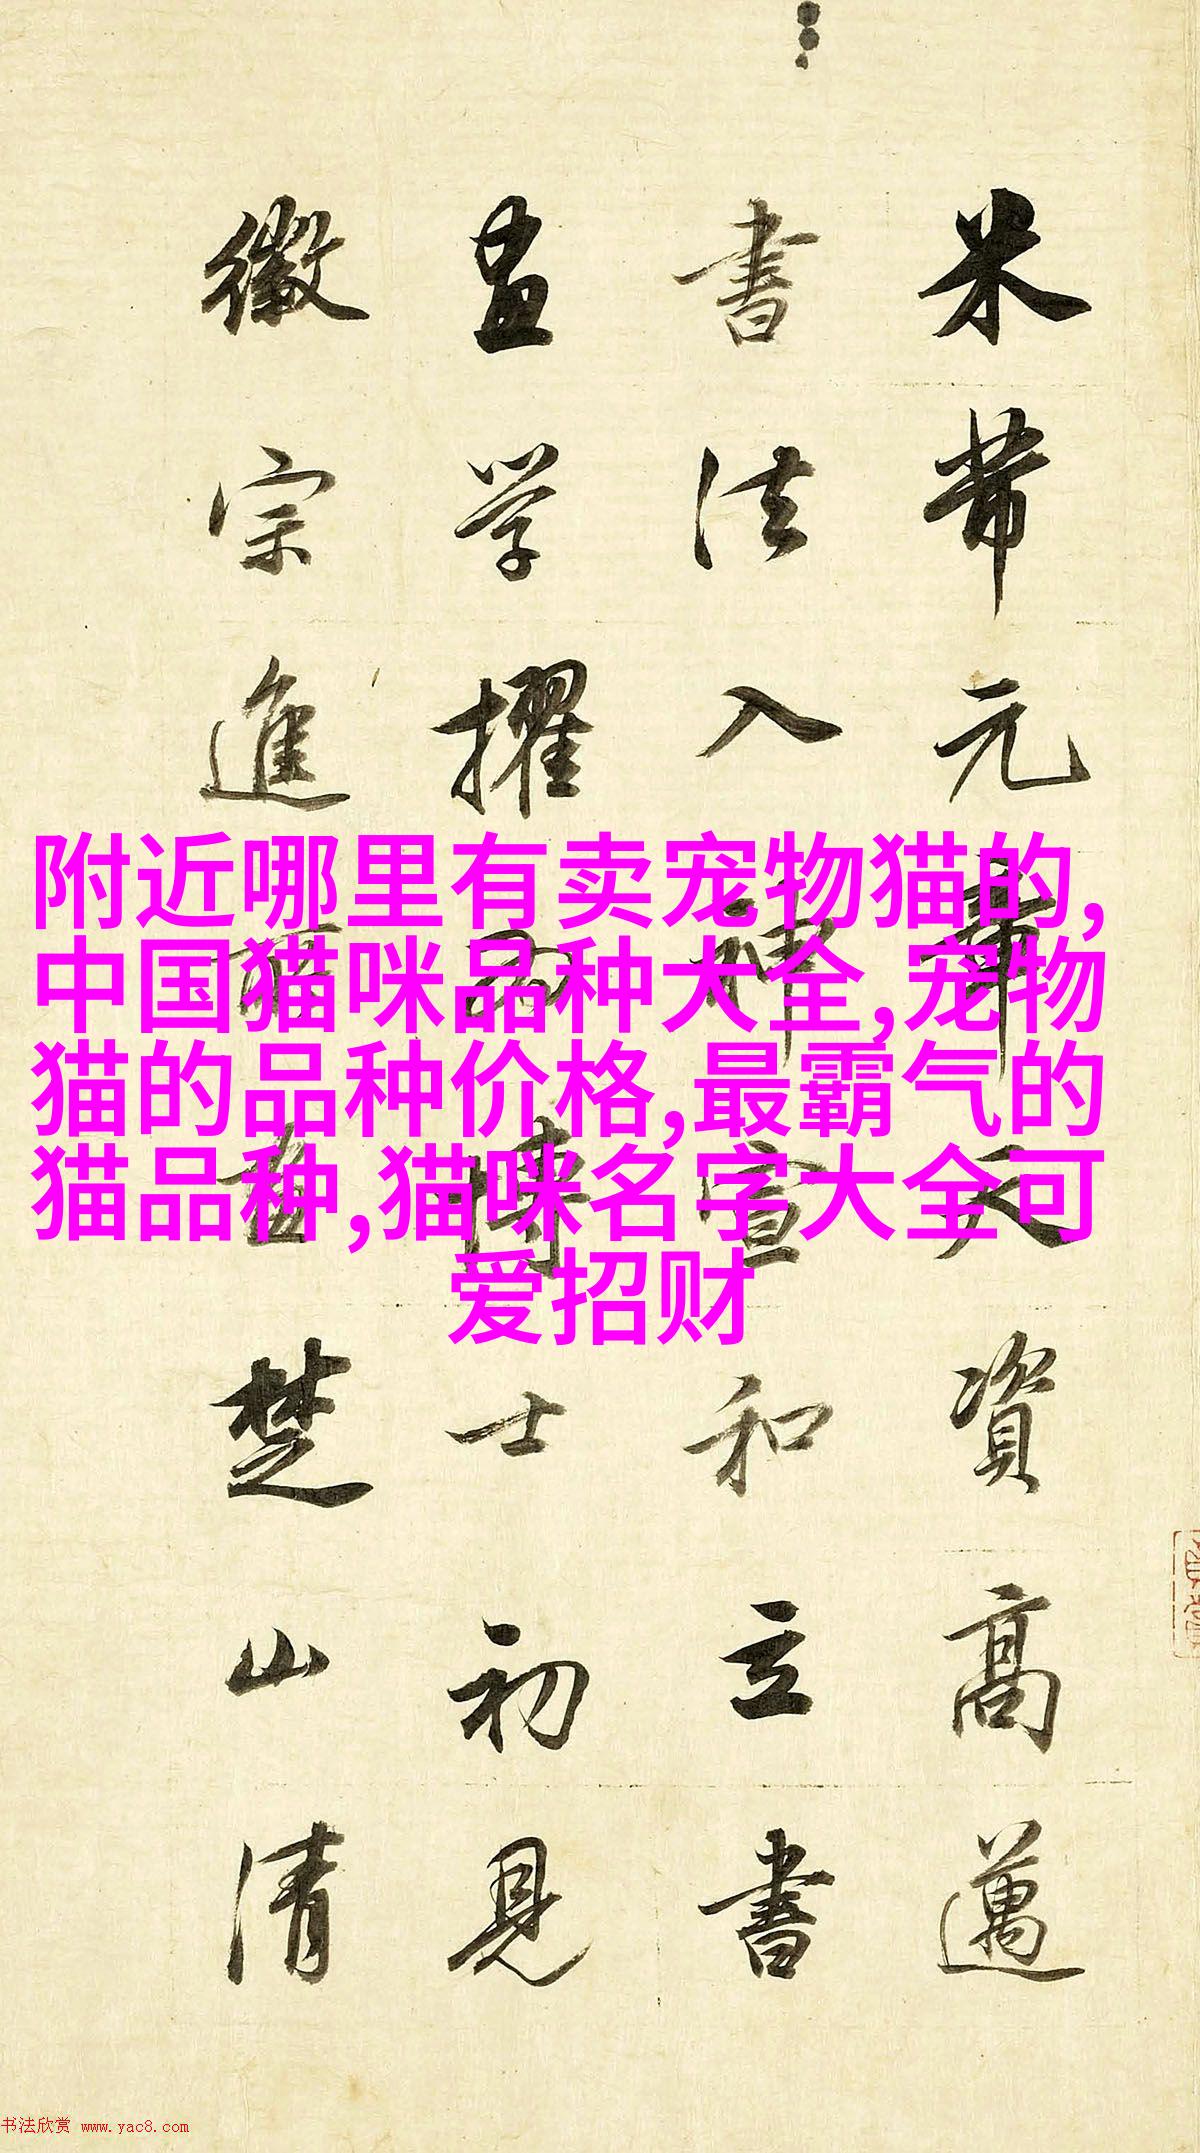 米芾元章天資高邁
書法入神宣和立書
畫學擢為博士初見
徽宗進所畫楚山清
附近哪里有卖宠物猫的,
中国猫咪品种大全,宠物
猫的品种价格,最霸气的
猫品种,猫咪名字大全可
爱招财
书法欣赏 www.yac8.com